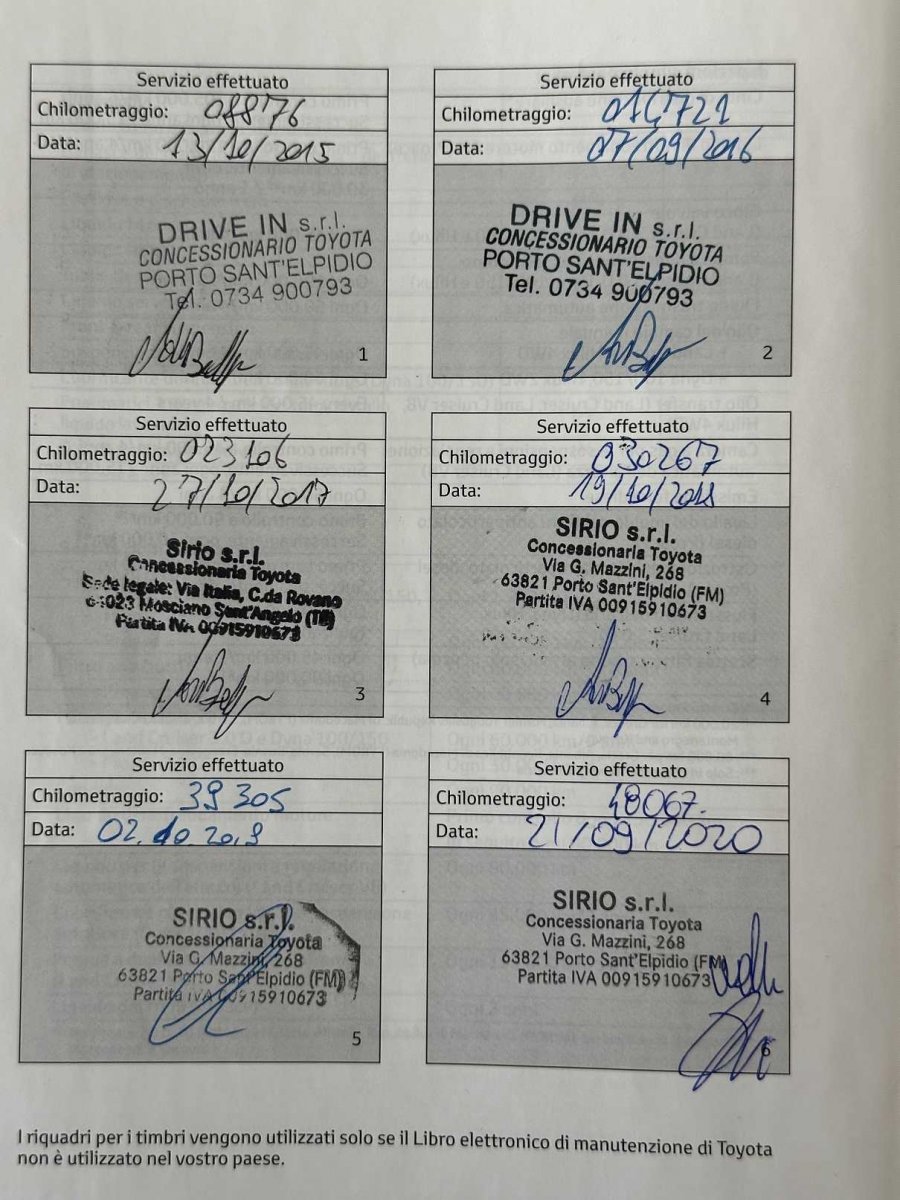 Servizio effettuato
Chilometraggio: 08876
Data: 13/10/2015
DRIVE IN s.r.l.
CONCESSIONARIO TOYOTA
PORTO SANT'ELPIDIO
Tel. 0734 900793
1
Servizio effettuato
Chilometraggio: 014721
Data: 07/09/2016
DRIVE IN s.r.l.
CONCESSIONARIO TOYOTA
PORTO SANT'ELPIDIO
Tel. 0734 900793
2
Servizio effettuato
Chilometraggio: 023106
Data: 27/10/2017
Sirio s.r.l.
Concessionaria Toyota
Sede legale: Via Italia, C.da Rovano
64023 Mosciano Sant'Angelo (TE)
Partita IVA 00915910673
3
Servizio effettuato
Chilometraggio: 030267
Data: 19/10/2018
SIRIO s.r.l.
Concessionaria Toyota
Via G. Mazzini, 268
63821 Porto Sant'Elpidio (FM)
Partita IVA 00915910673
4
Servizio effettuato
Chilometraggio: 39305
Data: 02.10.2019
SIRIO s.r.l.
Concessionaria Toyota
Via G. Mazzini, 268
63821 Porto Sant'Elpidio (FM)
Partita IVA 00915910673
5
Servizio effettuato
Chilometraggio: 48067.
Data: 21/09/2020
SIRIO s.r.l.
Concessionaria Toyota
Via G. Mazzini, 268
63821 Porto Sant'Elpidio (FM)
Partita IVA 00915910673
6
I riquadri per i timbri vengono utilizzati solo se il Libro elettronico di manutenzione di Toyota
non è utilizzato nel vostro paese.